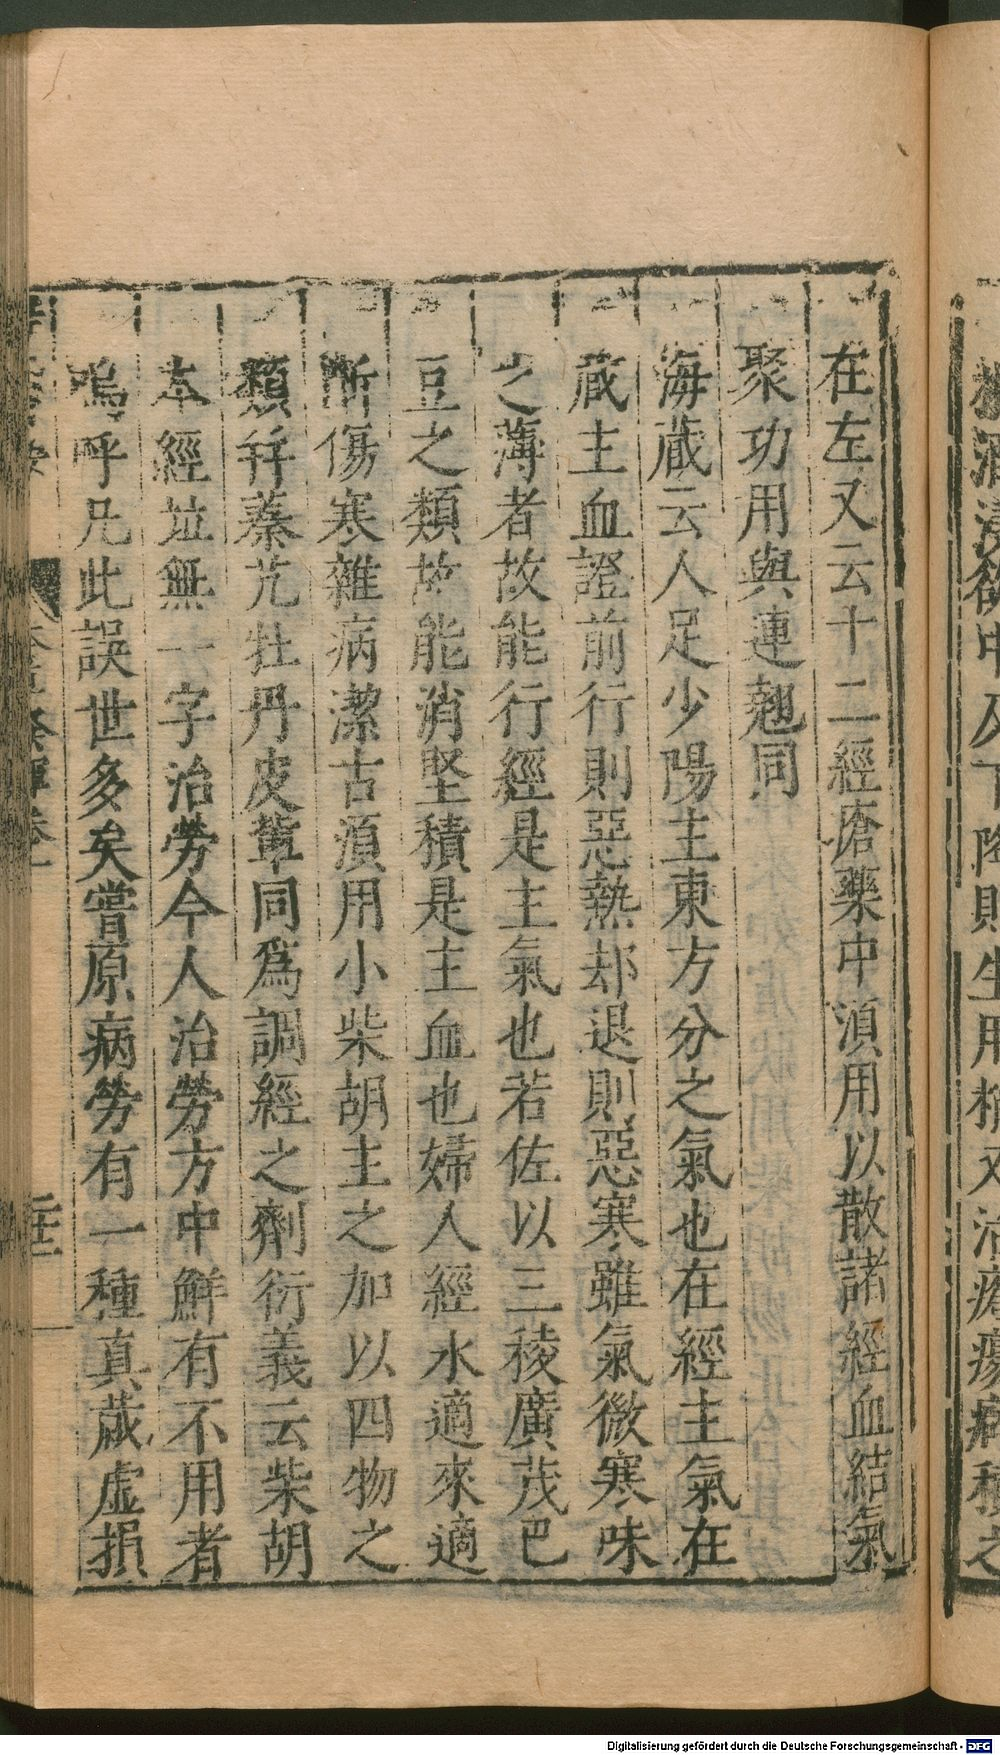 在左又云十二經瘡藥中湏用以散諸經血結氣
聚功用與連翹同
海蔵云人足少陽主東方分之氣也在經主氣在
蔵主血證前行則惡熱却退則惡寒雖氣微寒味
之薄者故能行經是主氣也若佐以三稜廣茂巴
豆之類故能消堅積是主血也婦人經水適來適
断傷寒雜病潔古湏用小柴胡主之加以四物之
類并蓁艽牡丹皮軰同爲調經之劑衍義云柴胡
本經並無一字治勞今人治勞方中鮮有不用者
嗚呼凡此誤世多矣嘗原病勞有一種真蔵虚損
Digitalisierung gefördert durch die Deutsche Forschungsgemeinschaft - DFG